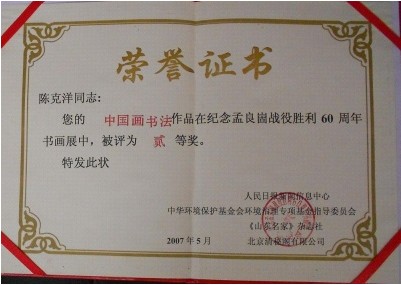 荣誉证书
陈克洋同志：
您的 中国画书法作品在纪念孟良崮战役胜利60周年
书画展中，被评为 贰 等奖。
特发此状
人民日报新闻信息中心
中华环境保护基金会环境治理专项基金指导委员会
《山东名家》杂志社
2007年5月